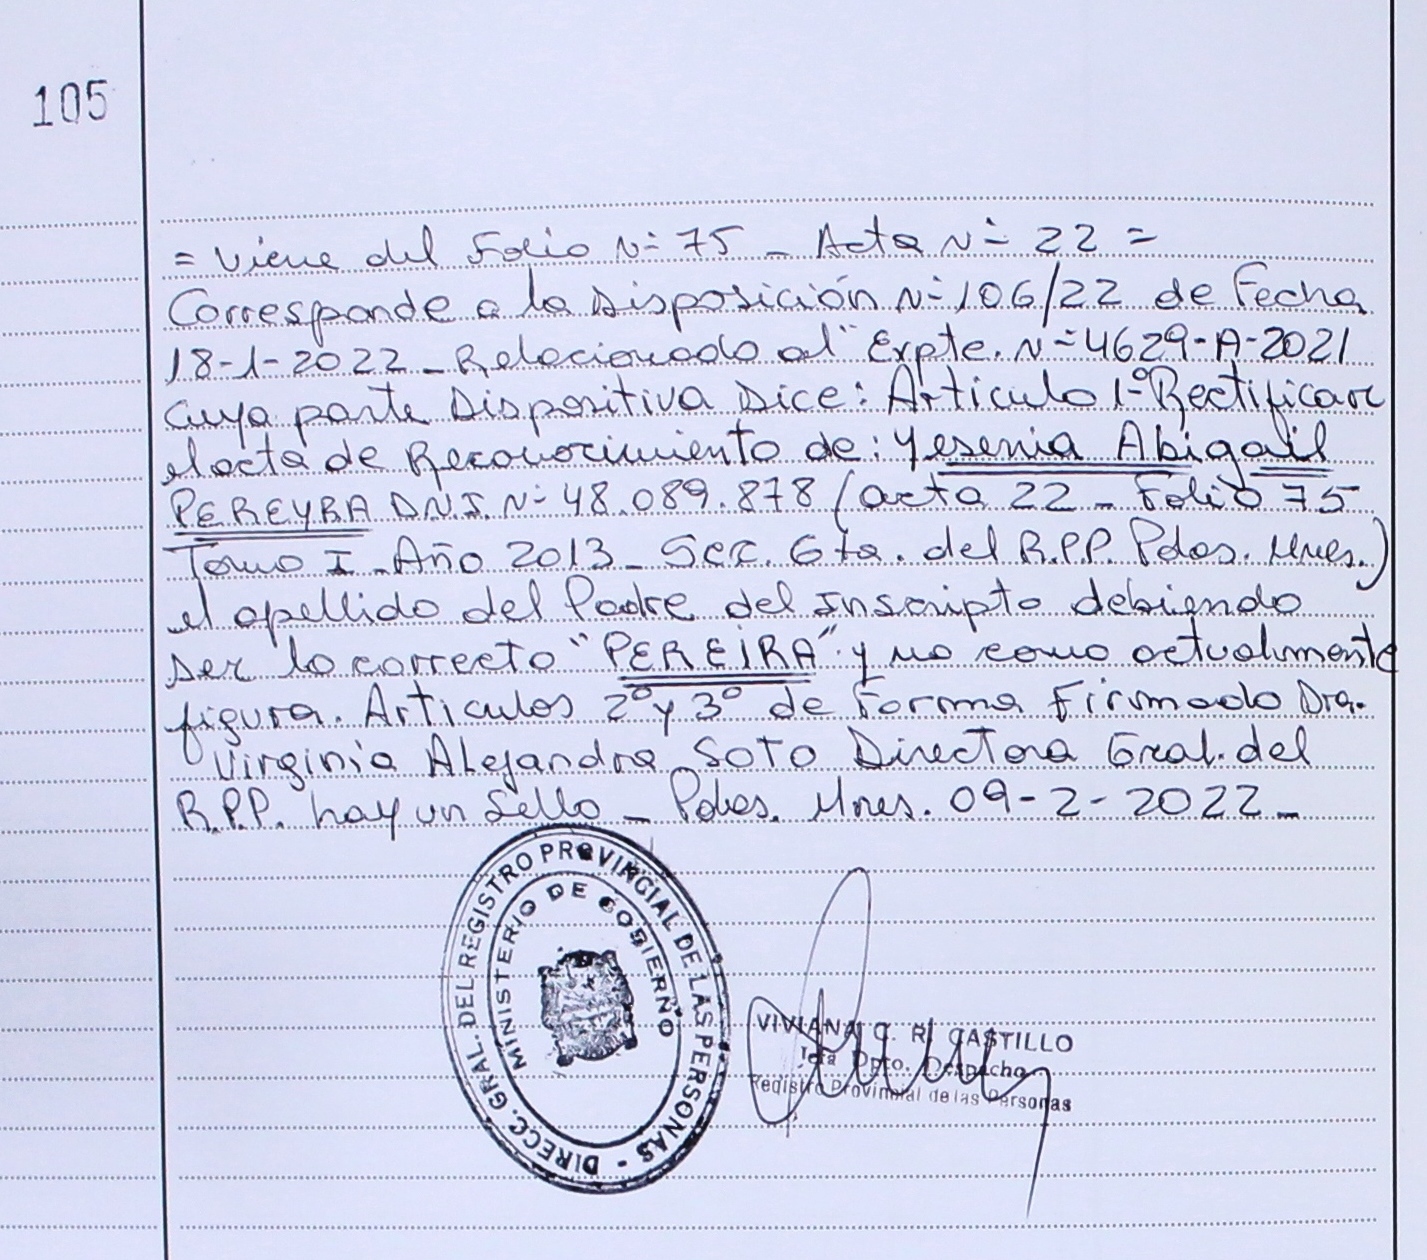 105
= Viene del Folio Nº 75 - Acta Nº 22 =
Corresponde a la Disposición Nº 106/22 de Fecha
18-1-2022 - Relacionado al Expte. Nº 4629-A-2021
Cuya parte Dispositiva Dice: Articulo 1º Rectificar
el acta de Reconocimiento de: Yesenia Abigail
PEREYRA D.N.I. Nº 48.089.878 (acta 22 - Folio 75
Tomo I - Año 2013 - Secc. 6ta. del R.P.P. Pdas. Mnes.)
el apellido del Padre del Inscripto debiendo
ser lo correcto "PEREIRA" y no como actualmente
figura. Articulos 2º y 3º de Forma Firmado Dra.
Virginia Alejandra SOTO Directora Gral. del
R.P.P. hay un Sello - Pdas. Mnes. 09-2-2022 -
DIRECC. GRAL. DEL REGISTRO PROVINCIAL DE LAS PERSONAS -
MINISTERIO DE GOBIERNO
VIVIANA C. R. CASTILLO
Jefa Dpto. Despacho
Registro Provincial de las Personas